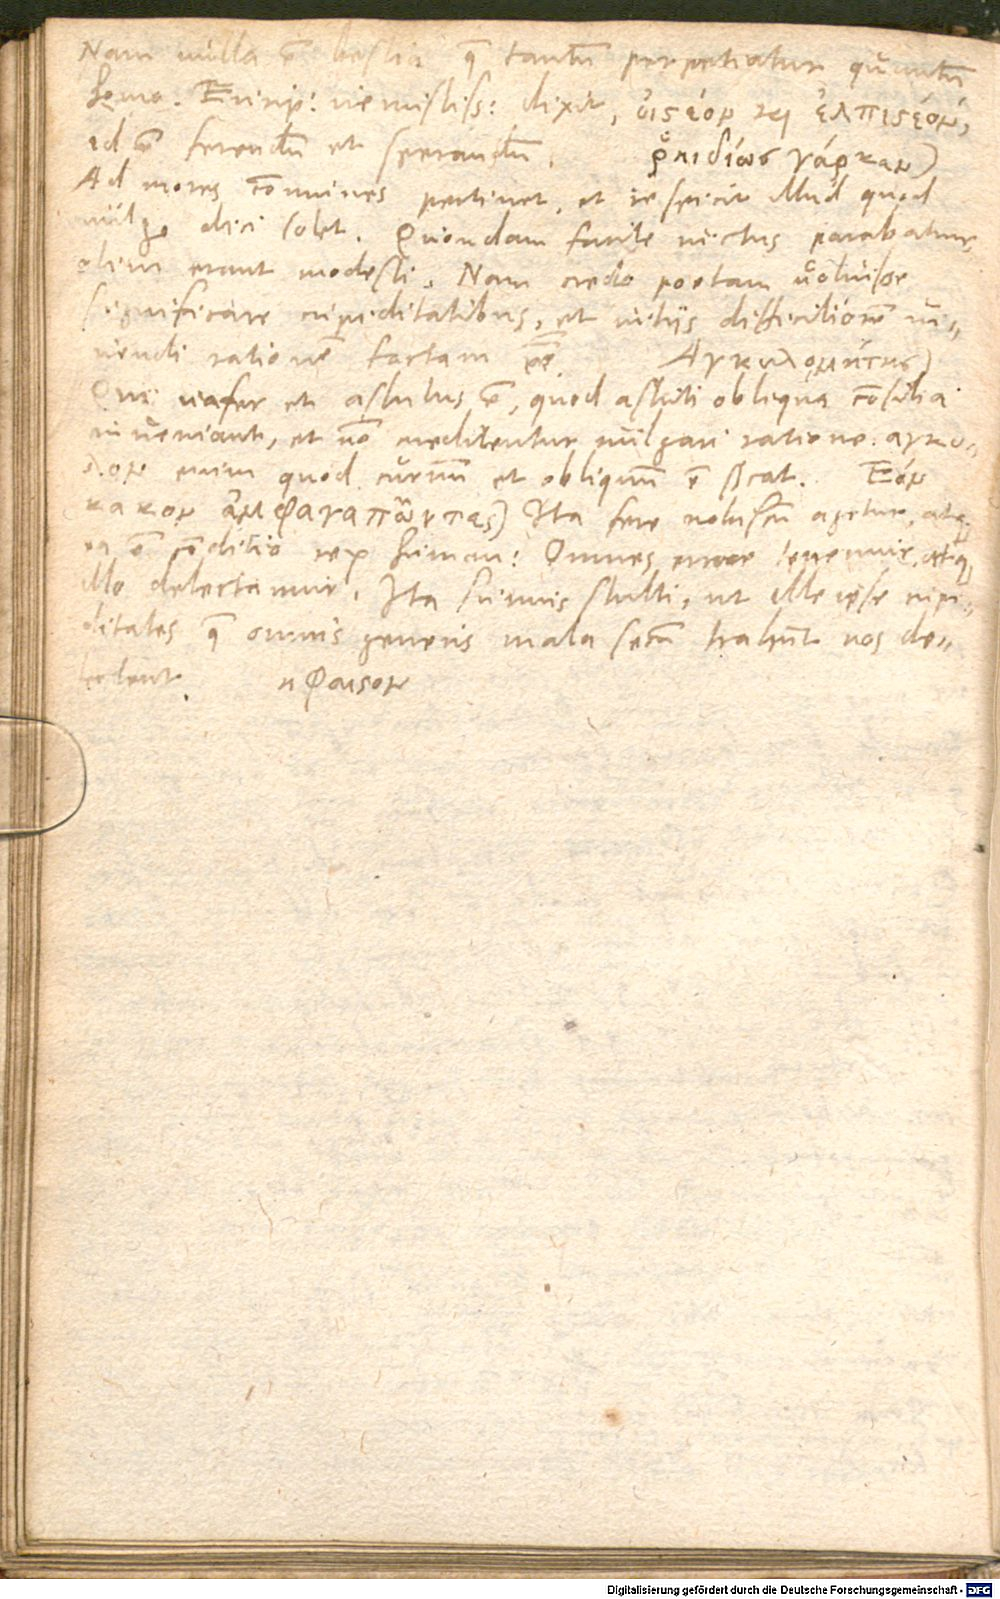 Nam nulla ē bestia q̄ tantū perpetiatur quantū
homo. Eurip: venustiss: dixit, ὀιστέον κ̀ ἐλπιστέον,
id ē ferendū et sperandū. ῥηιδίως γάρ κεν)
Ad mores cōmunes pertinet, et respicit illud quod
vulgo dici solet. Quondam facile victus parabatur,
olim erant modesti. Nam credo poetam uoluisse
significare cupiditatibus, et vitijs difficiliorē vi-
vendi rationē factam ēē. Αγκυλομήτης)
Qui vafer et astutus ē, quod astuti obliqua cōsilia
inveniant, et nō meditentur vulgari ratione. αγκυ-
λον enim quod curvum et obliquum ē significat. Εόν
κακον ἀμφαγαπῶντες) Ita fere nobiscū agitur, atq
ea ē cōditio rerū human: Omnes errore tenemur, atq
illo delectamur. Ita sumus stulti, ut ille ipse cupi-
ditates q̄ omnis generis mala secū trahūt nos de-
lectent. ηφαιστον
Digitalisierung gefördert durch die Deutsche Forschungsgemeinschaft - DFG